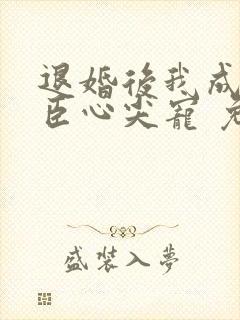 退婚後我成
臣心尖寵
盛裝入夢